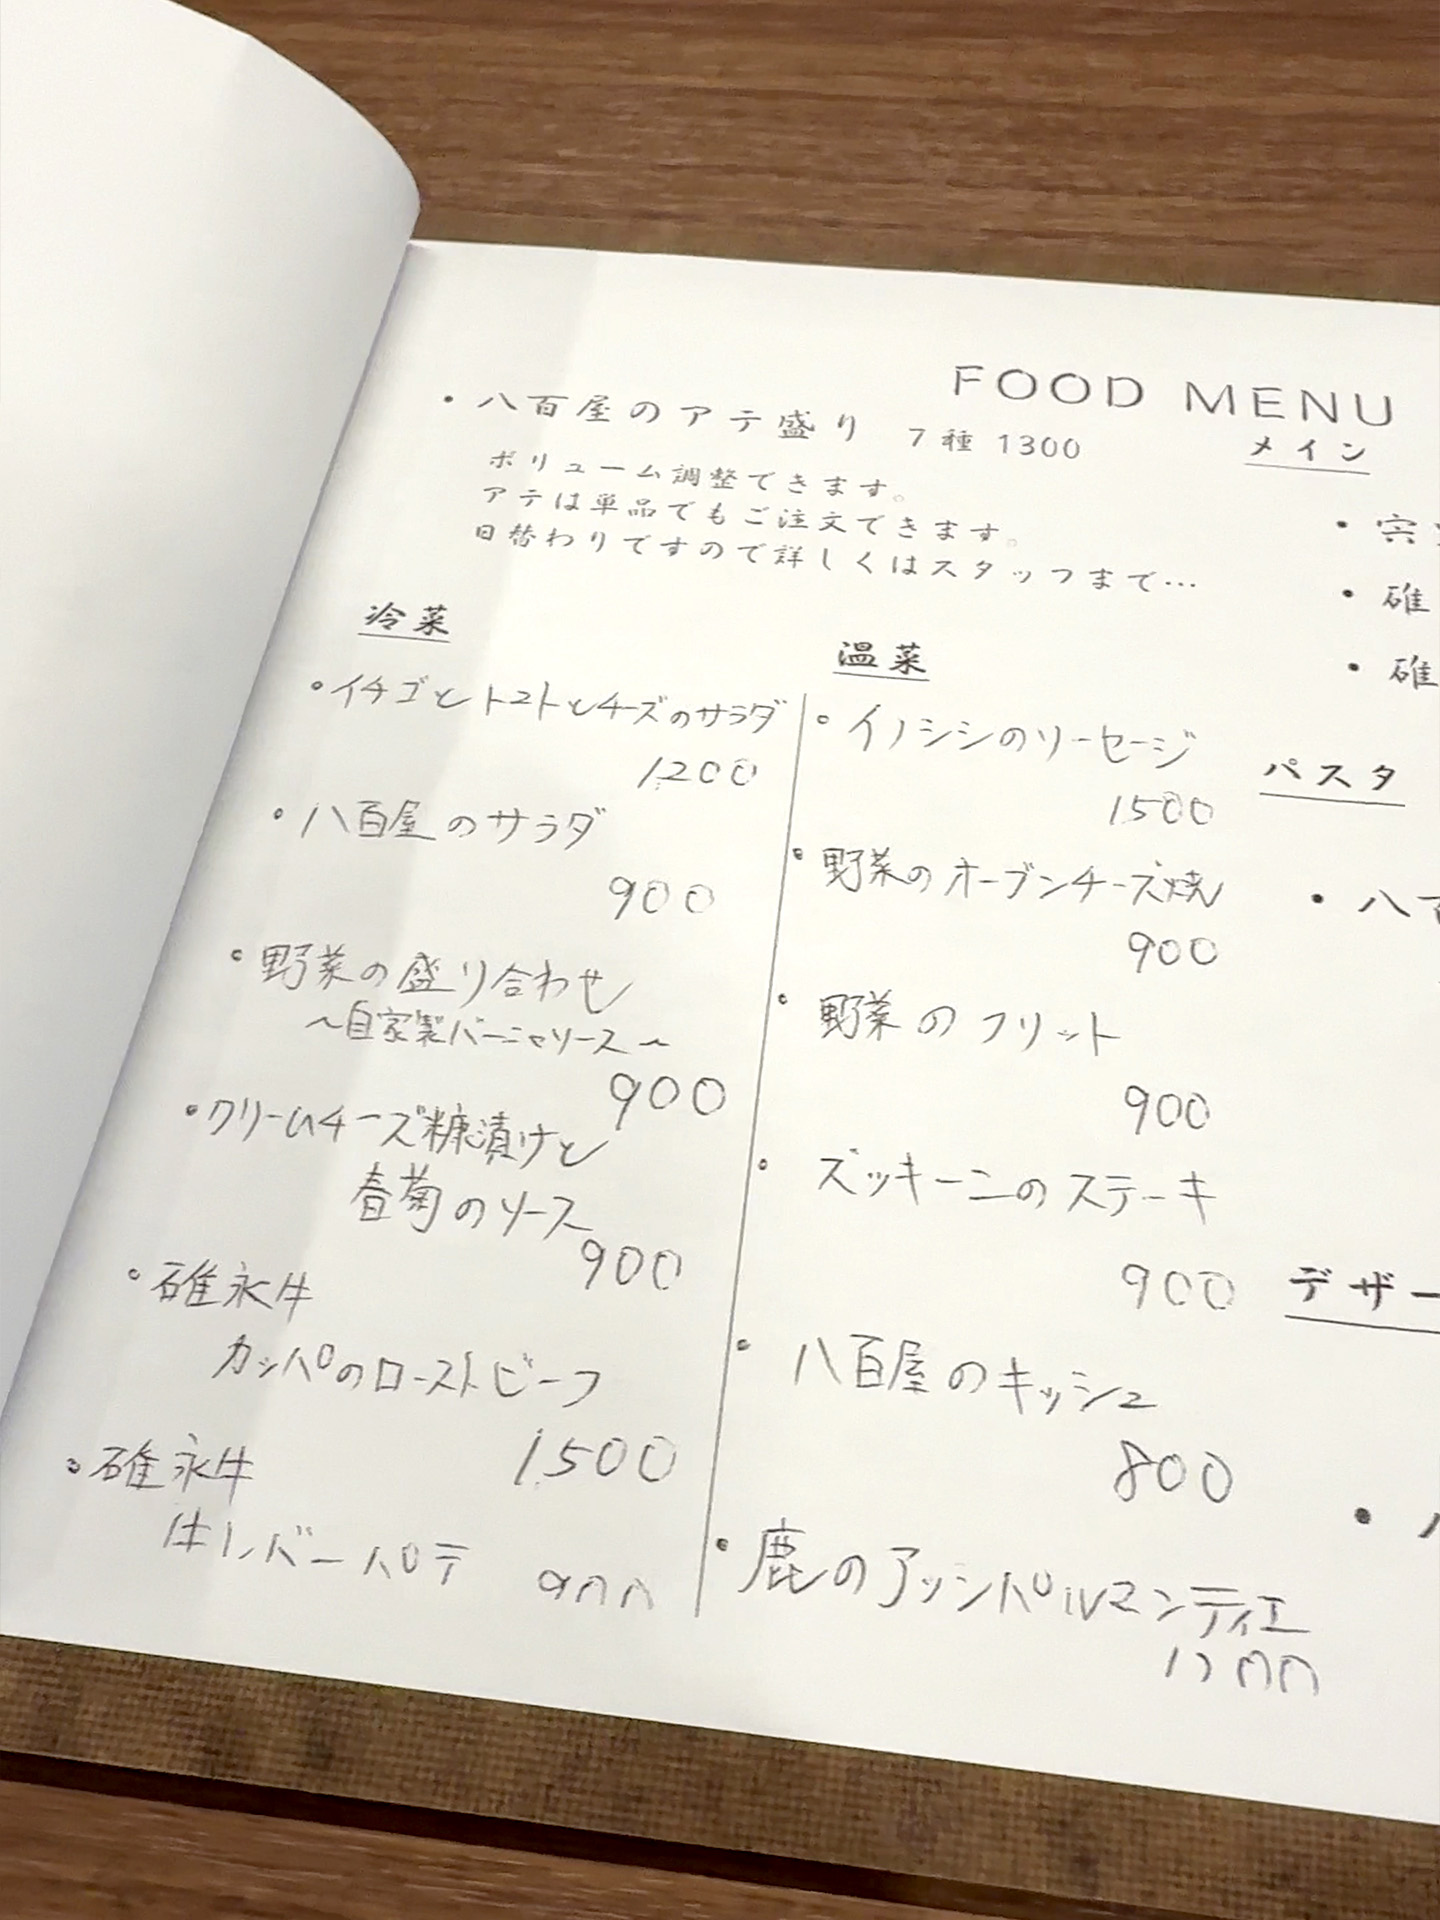 FOOD MENU
・八百屋のアテ盛り 7種 1300
ボリューム調整できます。
アテは単品でもご注文できます。
日替わりですので詳しくはスタッフまで…
冷菜
・イチゴとトマトとチーズのサラダ
1200
・八百屋のサラダ
900
・野菜の盛り合わせ
～自家製バーニャソース～
900
・クリームチーズ糠漬けと
春菊のソース
900
・碓永牛
カッパのローストビーフ
1500
・碓永牛
牛レバーパテ
900
温菜
・イノシシのソーセージ
1500
・野菜のオーブンチーズ焼
900
・野菜のフリット
900
・ズッキーニのステーキ
900
・八百屋のキッシュ
800
・鹿のアッシパルマンティエ
メイン
・碓
・碓
パスタ
・八
デザー